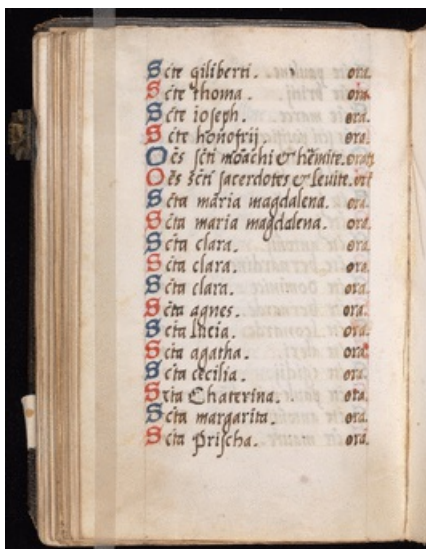 Scte giliberti. ora.
Scte thoma. ora.
Scte ioseph. ora.
Scte hōnofrij. ora.
Oēs scti mōachi & hēmite. orate
Oēs scti sacerdotes & levite. ort
Scta maria magdalena. ora.
Scta maria magdalena. ora.
Scta clara. ora.
Scta clara. ora.
Scta clara. ora.
Scta agnes. ora.
Scta lucia. ora.
Scta agatha. ora.
Scta cecilia. ora.
Scta Chaterina. ora.
Scta margarita. ora.
Scta prischa. ora.